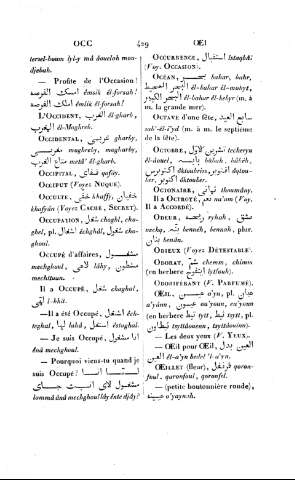 OCC 429 ŒI
tersel-boum îyl-y mâ doueloh mou-
djebah.
— Profite de l'Occasion!
امسك الفرصة émsik êl-forsah!
امسك الفرصة êmsik êl-forsah!
L'OCCIDENT, الغرب êl-gharb,
المغرب êl-Maghreb.
OCCIDENTAL, غربي gharby,
مغربي maghreby, magharby,
متاع الغرب metâ' êl-gharb.
OCCIPITAL, قفاي qafay.
OCCIPUT (Voyez NUQUE).
OCCULTE, خفي khaffy, خفيان
khafyân (Voyez CACHÉ, SECRET).
OCCUPATION, شغل choghl, cho-
ghel, pl. اشغال êchghâl, شغول cho-
ghoul.
OCCUPÉ d'affaires, مشغول
machghoul, لاهي lâhy, مشطون
mechttoun.
Il a OCCUPÉ, شغل chaghal,
الهى l-hât.
—Il a été Occupé, اشتغل êch-
teghal, لهد lahd, اشتغل êstaghal.
— Je suis Occupé, انا مشغول
ânâ mechghoul.
— Pourquoi viens-tu quand je
suis Occupé?
مشغول لاى انت جاى
OCCURRENCE, استقبال îstaqbâl
(Voy. OCCASION).
OCÉAN, بحر bahar, bahr,
البحر المحيط êl-bahar êl-mohyt,
البحر الكبير êl-bahar êl-kebyr (m. à
m. la grande mer).
OCTAVE d'une fête, سابع العيد
sab'-êl-î'yd (m. à m. le septième
de la fête).
OCTOBRE, تشرين الاول techeryn
êl-âouel, بابه bâbah, bâbéh,
اكتوبريس ôktoubrios, اكتوبر ôktou-
ber.
OCTONAIRE, ثماني thoumâny.
Il a OCTROYÉ, نعم na'am (Voy.
Il a ACCORDÉ).
ODEUR, ريحة ryhah,
nechq, بنة benéh, bennah, plur.
بنان benân.
ODIEUX (Voyez DÉTESTABLE).
ODORAT, شم chemm, chimm
(en berbère).
ODORIFÉRANT (V. PARFUMÉ).
ŒIL, عين a'yn, pl.
a'yân, عيون ou'youn, eu'youn
(en berbère تيط tyt, تيط tyt, pl.
تيطاوين tyttâouen, tyttâouin).
— Les deux yeux (V. YEUX.
— ŒIL pour ŒIL, العين بدل
العين êl-a'yn bedel 'l-a'yn.
ŒILLET (fleur), قرنفل qoron-
foul, qaronfoul, qoronfel.
— (petite boutonnière ronde),
عينة o'yaynéh.